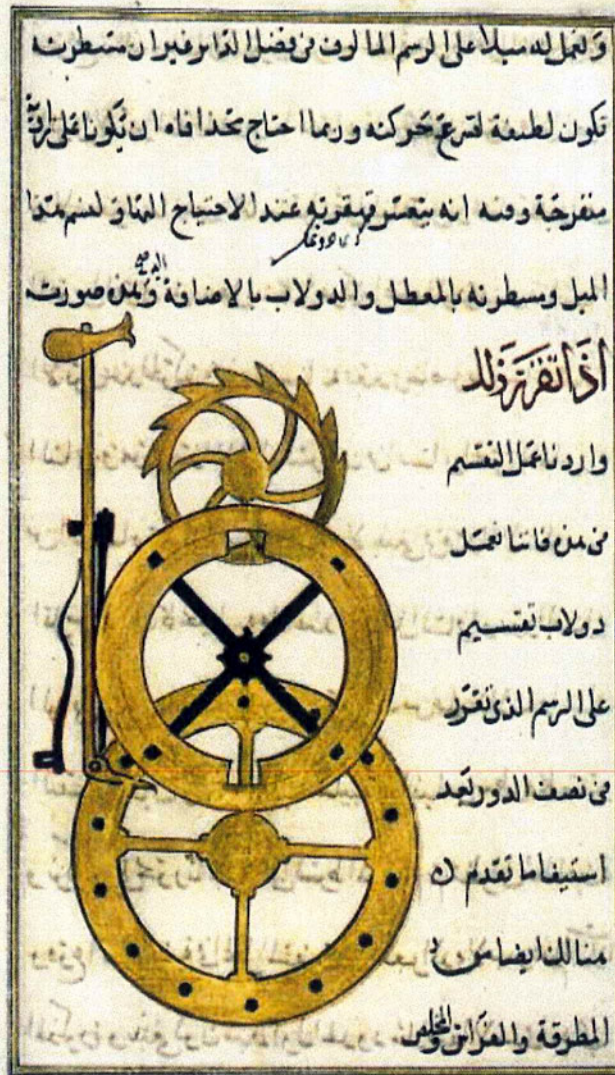 ولنعمل له ميلا على الرسم المالوف من فضل الدا غير ان مسطرته
تكون لطيفة لتسرع حركته وربما احتاج تحذافاه ان يكونا على
منفرجة وفيه انه يتعسر عند الاحتياج الها ولنسم هذا
الميل ومسطرته بالمعطل والدولاب بالاضافة وهذه صورته
اذا تقرر ذلك
واردنا عمل التقسيم
في هذه فاننا نعمل
دولاب تقسيم
على الرسم الذي تقرر
في نصف الدور بعد
استيفا ما تقدم
هنالك ايضا من
المطرقة والفراش والمخلص